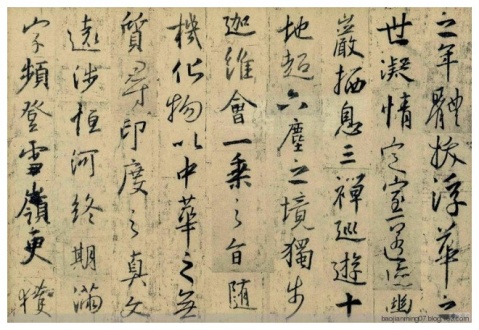 之年體拔浮華之
世凝情定室匿迹幽
巖栖息三禪巡遊十
地超六塵之境獨步
迦維會一乘之旨随
機化物以中華之無
質尋印度之真文
遠涉恒河終期滿
字頻登雪嶺更獲
baojianming07.blog.163.com